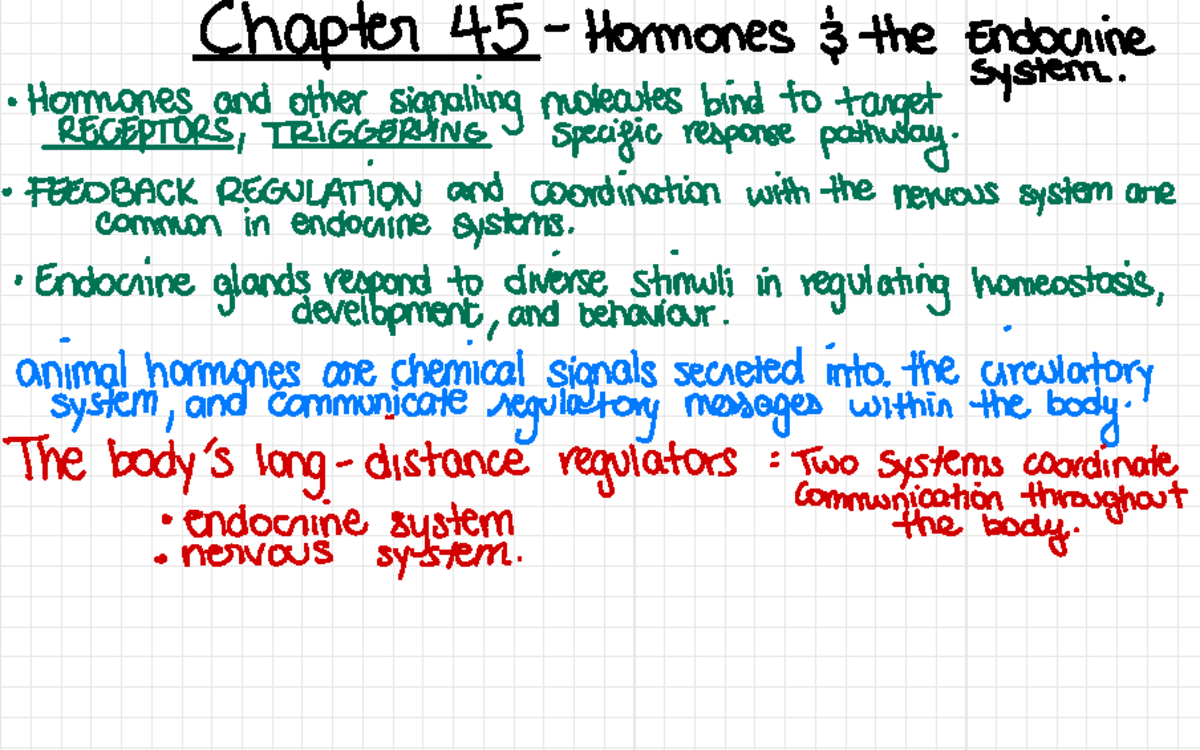 Chapter 45 - Hormones & the Endocrine
system.
• Hormones and other signalling molecules bind to target
RECEPTORS, TRIGGERING specific response pathway.
• FEEDBACK REGULATION and coordination with the nervous system are
common in endocrine systems.
• Endocrine glands respond to diverse stimuli in regulating homeostasis,
development, and behaviour.
animal hormones are chemical signals secreted into. the circulatory
system, and communicate regulatory messages within the body.
The body's long-distance regulators : Two systems coordinate
communication throughout
the body.
• endocrine system
• nervous system.